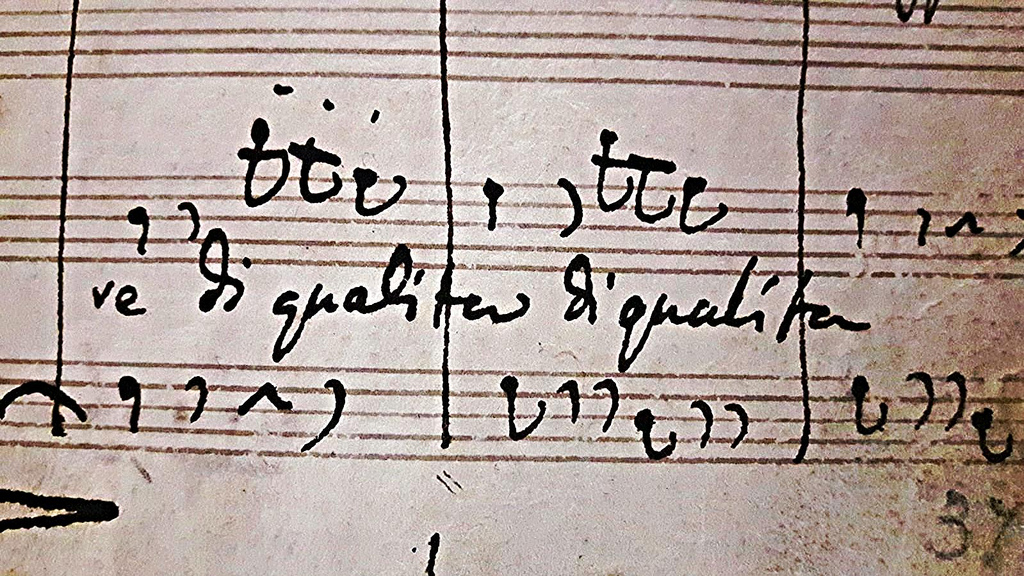 ve di qualitar di qualitar
37